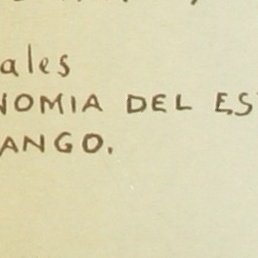 ales
NOMIA DEL ES
ANGO.